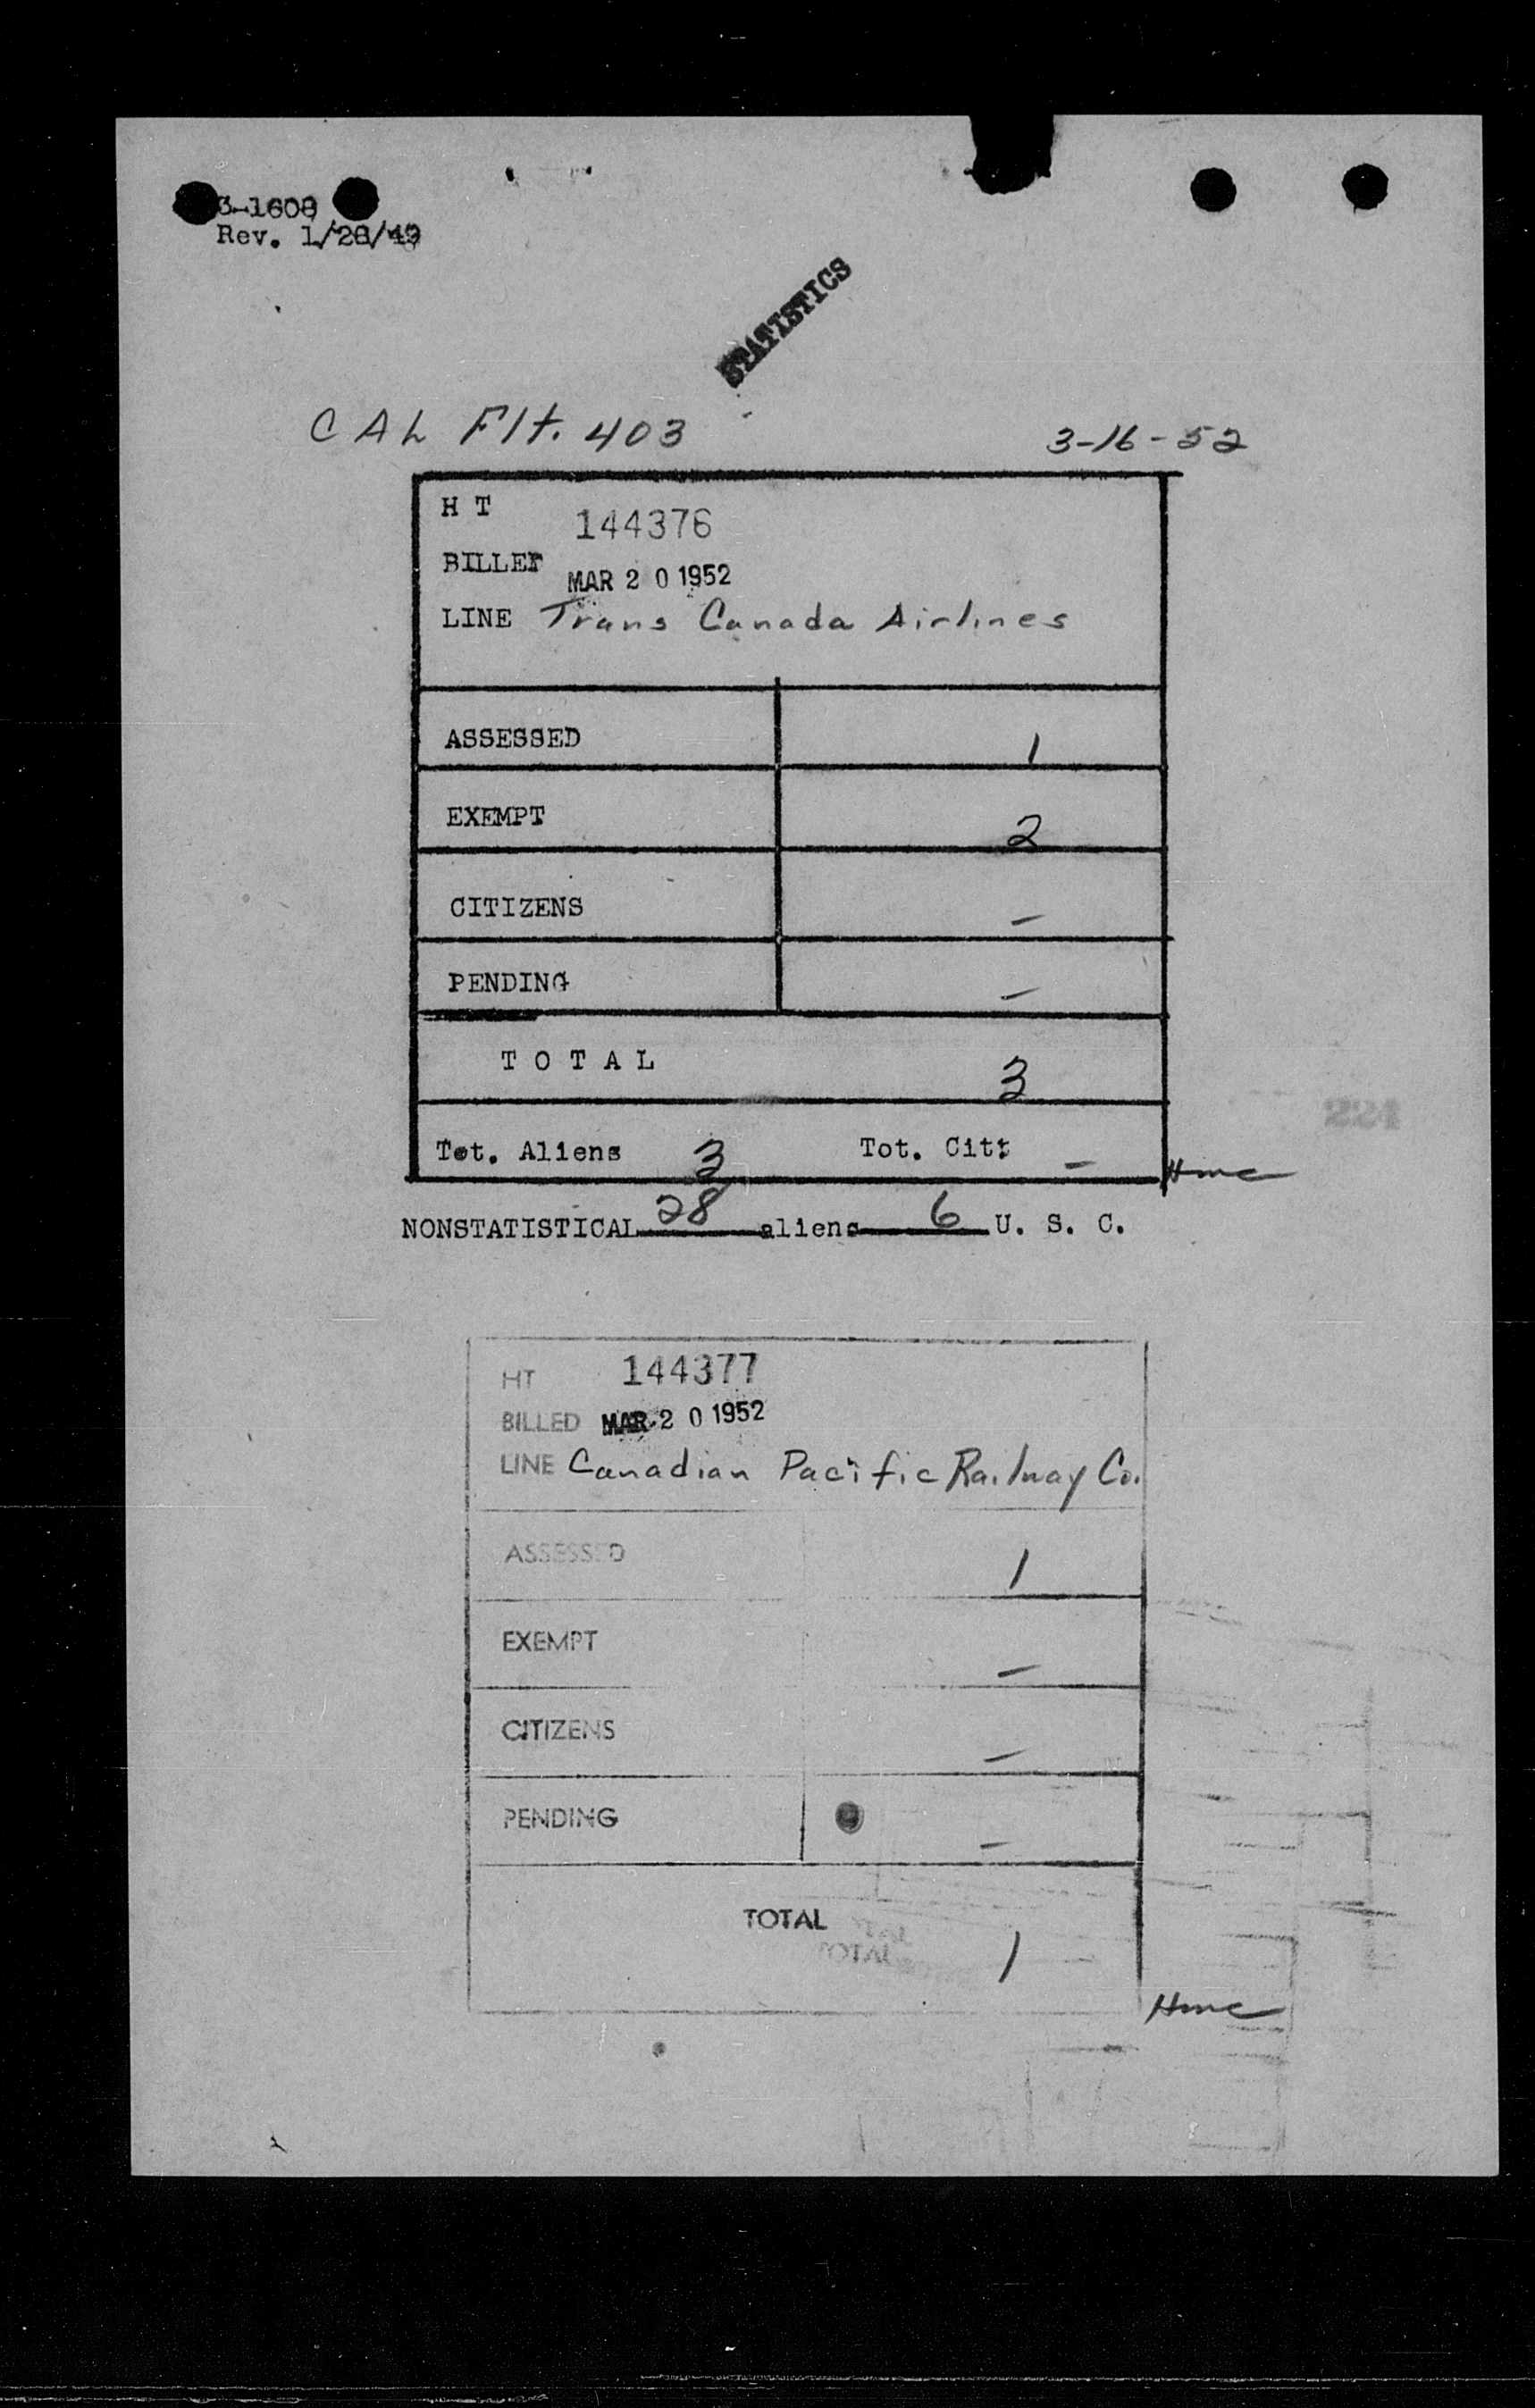 3-1608
Rev. 1/28/49
STATISTICS
CAL Flt. 403 3-16-52
H T 144376
BILLED MAR 20 1952
LINE Trans Canada Airlines
ASSESSED 1
EXEMPT 2
CITIZENS -
PENDING -
T O T A L 3
Tot. Aliens 3 Tot. Cit: -
Hmc
NONSTATISTICAL 28 aliens 6 U. S. C.
HT 144377
BILLED MAR 20 1952
LINE Canadian Pacific Railway Co.
ASSESSED 1
EXEMPT -
CITIZENS -
PENDING -
TOTAL 1
TOTAL
Hmc